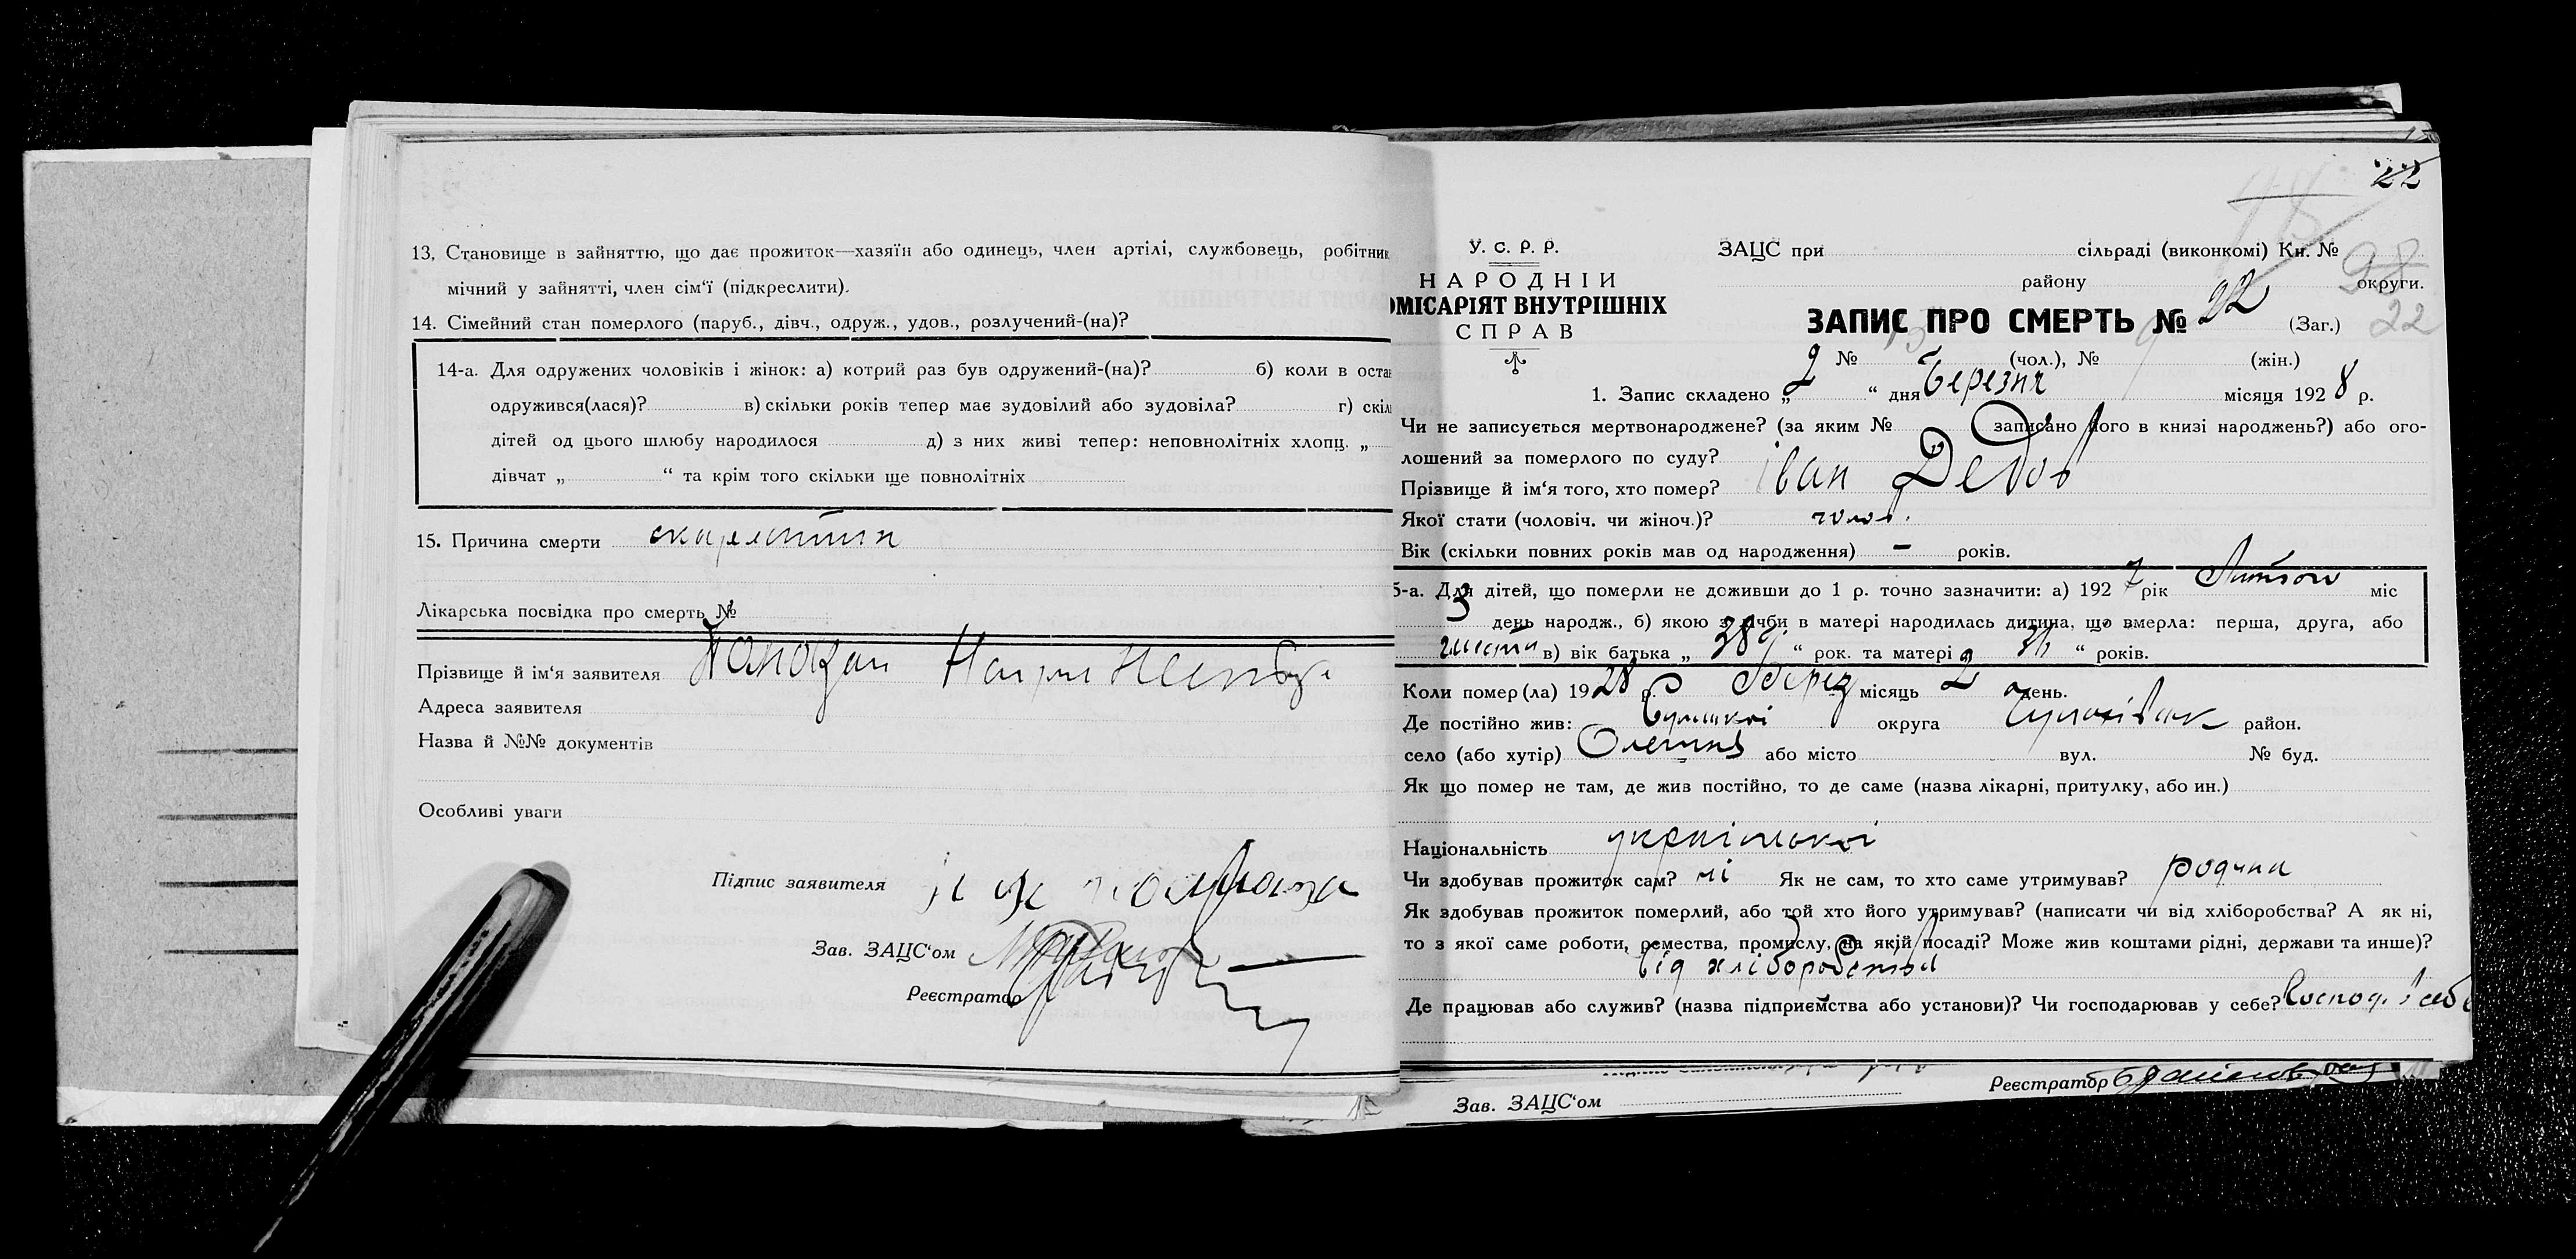 13. Становище в зайняттю, що дає прожиток—хазяїн або одинець, член артілі, службовець, робітник
мічний у зайнятті, член сім‘ї (підкреслити).
14. Сімейний стан померлого (паруб., дівч., одруж., удов., розлучений-(на)?
14-а. Для одружених чоловіків і жінок: а) котрий раз був одружений-(на)? б) коли в оста
одружився(лася)? в) скільки років тепер має зудовілий або зудовіла? г) скіл
дітей од цього шлюбу народилося д) з них живі тепер: неповнолітніх хлопц. „
дівчат „ “ та крім того скільки ще повнолітніх
15. Причина смерти скарлатина
Лікарська посвідка про смерть №
Прізвище й ім‘я заявителя
Адреса заявителя
Назва й №№ документів
Особливі уваги
Підпис заявителя
Зав. ЗАЦС‘ом
Реєстратор
22
У. С. Р. Р.
НАРОДНІЙ
ОМІСАРІЯТ ВНУТРІШНІХ
СПРАВ
ЗАЦС при сільраді (виконкомі) Кн. №
району округи.
98
ЗАПИС ПРО СМЕРТЬ № 22 (Заг.) 22
№ 13 (чол.), № 9 (жін.)
1. Запис складено „ 2 “ дня Березня місяця 1928 р.
Чи не записується мертвонароджене? (за яким № записано його в книзі народжень?) або ого-
лошений за померлого по суду?
Прізвище й ім‘я того, хто помер? Іван Дедов
Якої стати (чоловіч. чи жіноч.)? чолов.
Вік (скільки повних років мав од народження) – років.
5-а. Для дітей, що померли не доживши до 1 р. точно зазначити: а) 1927 рік міс
3 день народж., б) якою з лічби в матері народилась дитина, що вмерла: перша, друга, або
шоста в) вік батька „ 38 “ рок. та матері „ “ років.
Коли помер(ла) 1928 р. Берез місяць 2 день.
Де постійно жив: Сумської округа район.
село (або хутір) або місто вул. № буд.
Як що помер не там, де жив постійно, то де саме (назва лікарні, притулку, або ин.)
Національність української
Чи здобував прожиток сам? ні Як не сам, то хто саме утримував? родина
Як здобував прожиток померлий, або той хто його утримував? (написати чи від хліборобства? А як ні,
то з якої саме роботи, ремества, промислу, на якій посаді? Може жив коштами рідні, держави та инше)?
від хліборобства
Де працював або служив? (назва підприємства або установи)? Чи господарював у себе? Господ. в себе
Реєстратор
Зав. ЗАЦС‘ом